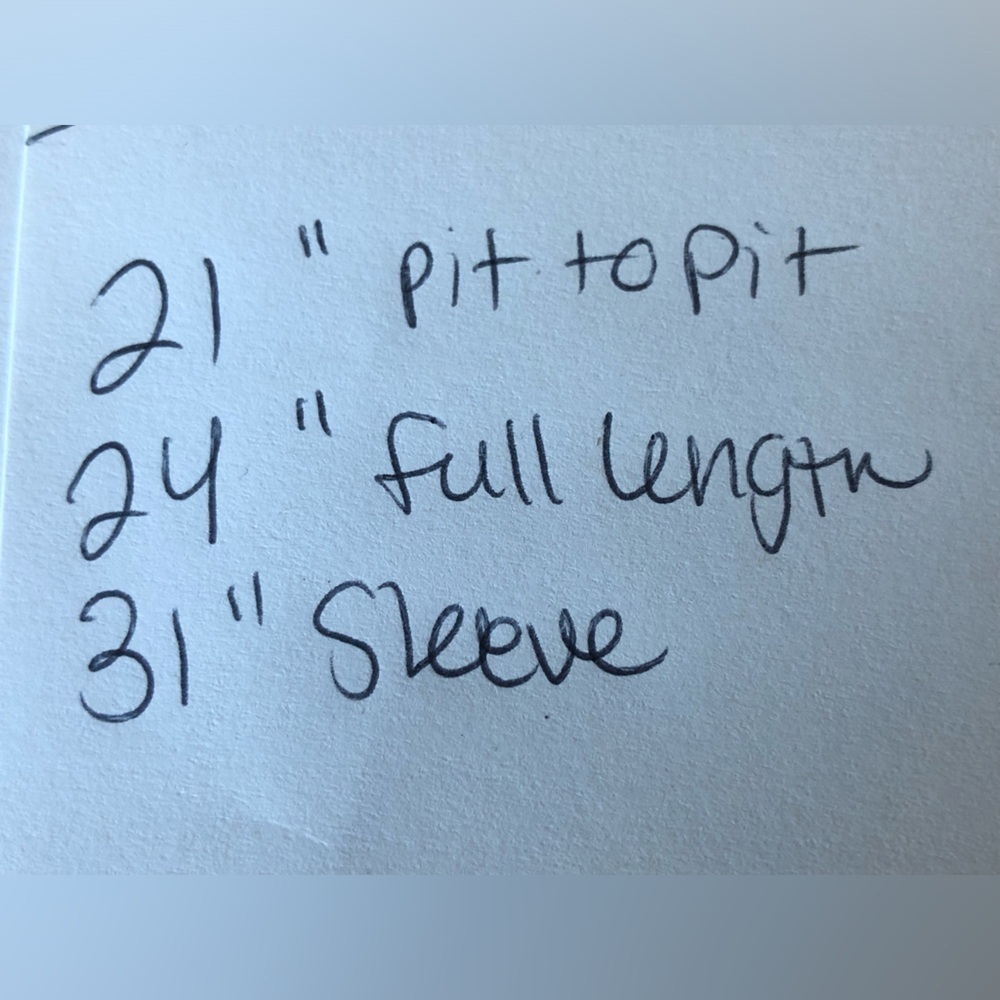 21 " pit to pit
24 " full length
31 " Sleeve